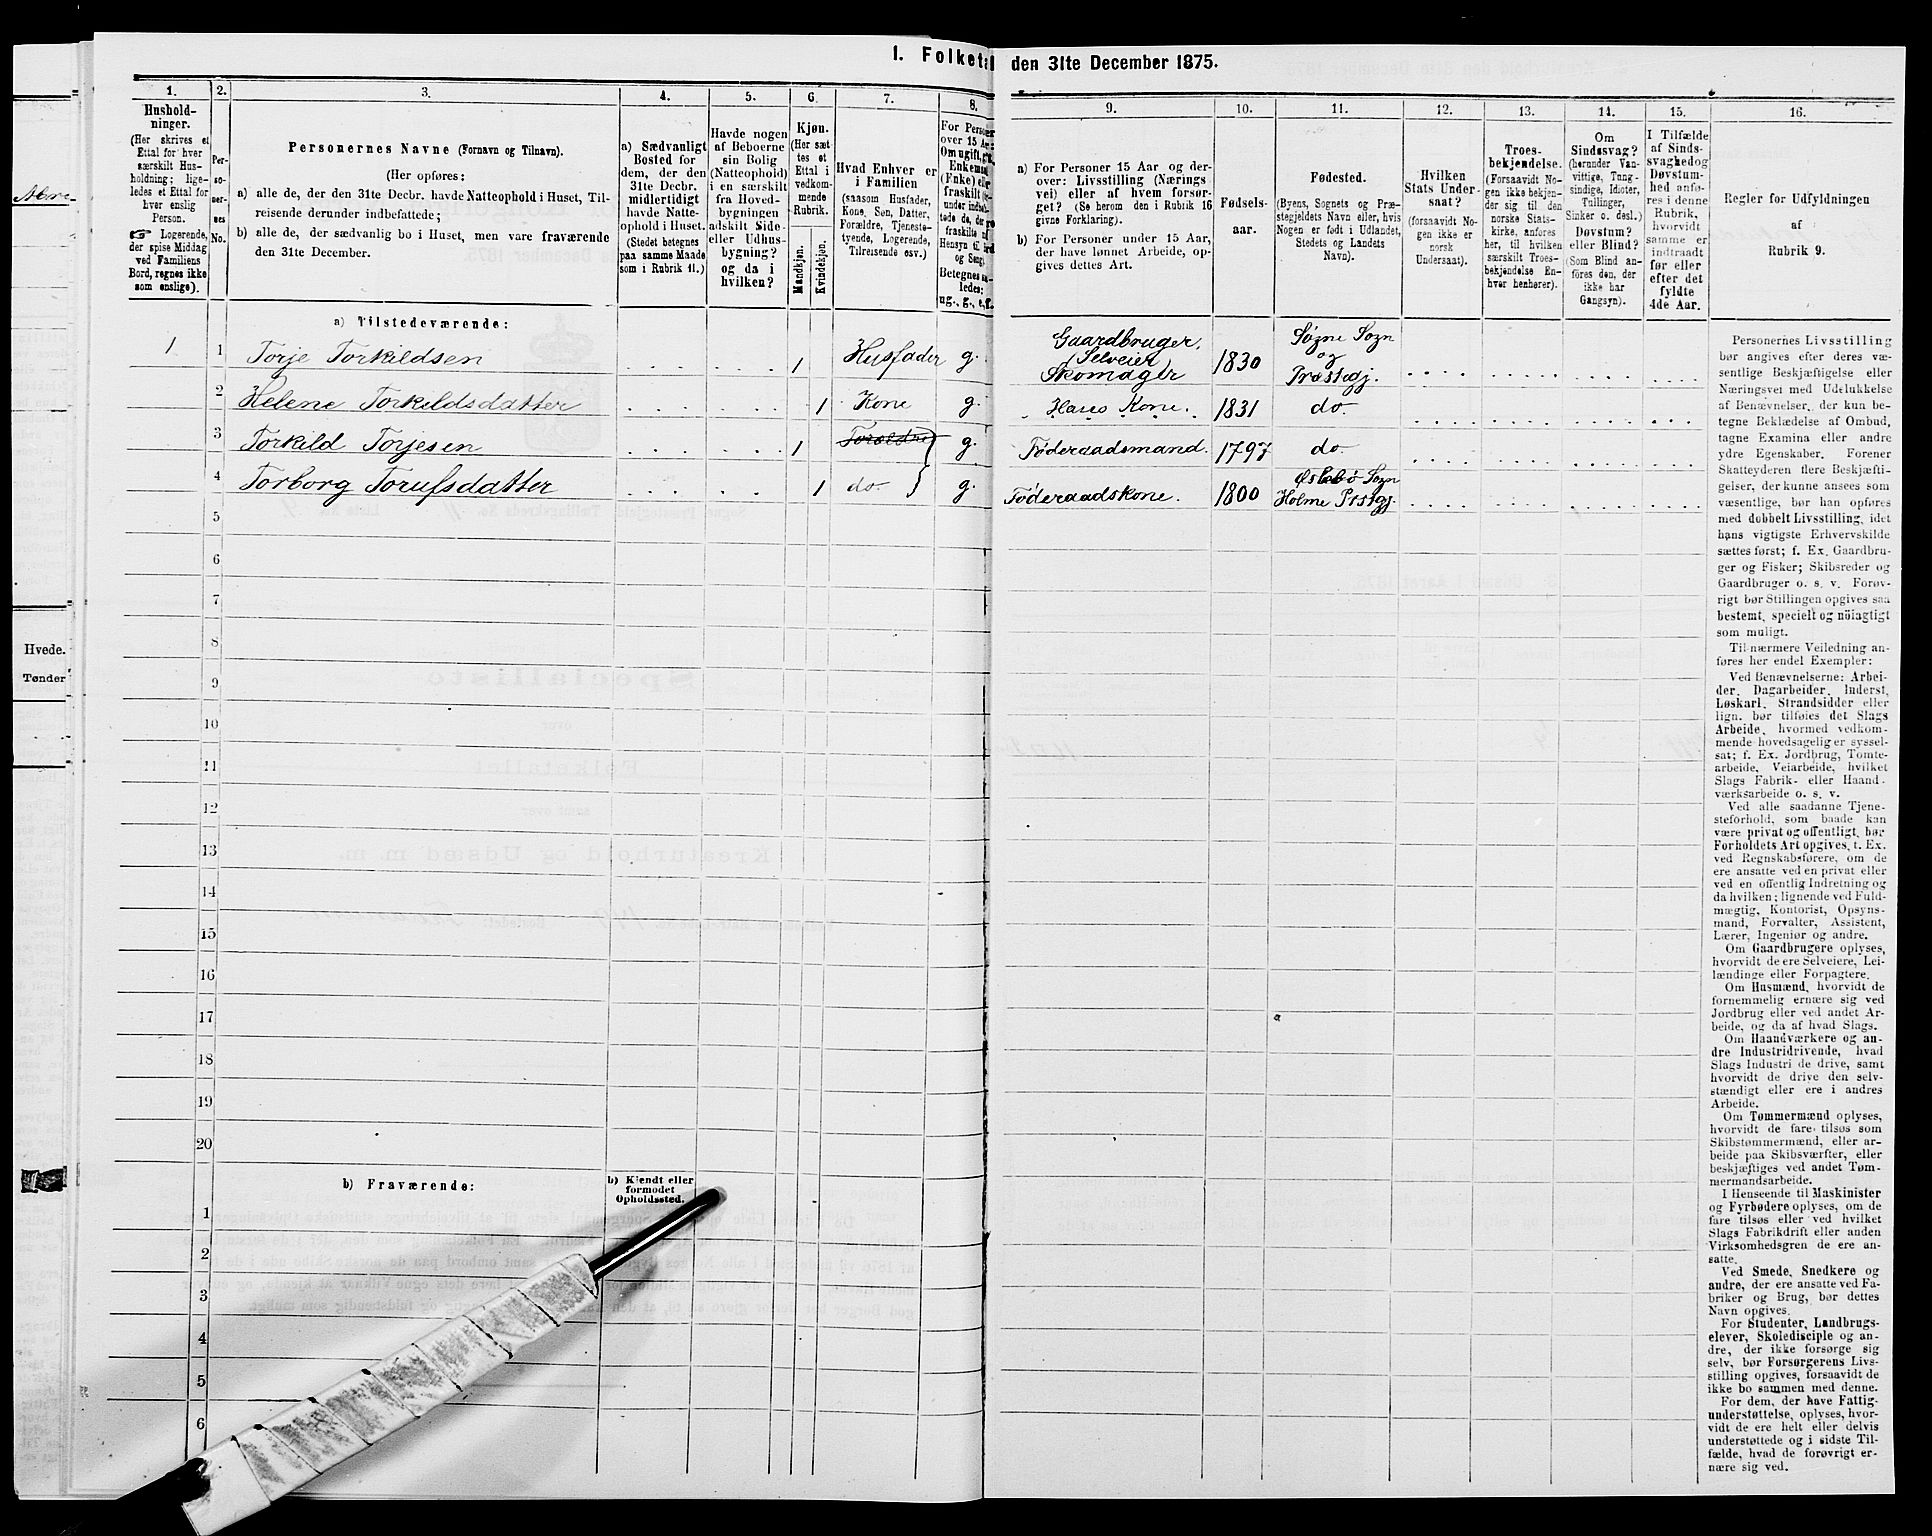 1. Folketal den 31te December 1875.
1.
Hushold-
ninger.
(Her skrives et
Ettal for hver
særskilt Hus-
holdning; lige-
ledes et Ettal for
hver enslig
Person.
Logerende,
der spise Middag
ved Familiens
Bord, regnes ikke
som enslige).
2.
Per-
so-
ner-
nes
No.
3.
Personernes Navne (Fornavn og Tilnavn).
(Her opføres:
a) alle de, der den 31te Decbr. havde Natteophold i Huset, Til-
reisende derunder indbefattede;
b) alle de, der sædvanlig bo i Huset, men vare fraværende
den 31te December.
4.
a) Sædvanligt
Bosted for
dem, der den
31te Decbr.
midlertidigt
havde Natte-
ophold i Huset.
(Stedet betegnes
paa samme Maade
som i Rubrik 11.)
5.
Havde nogen
af Beboerne
sin Bolig
(Natteophold)
i en særskilt
fra Hoved-
bygningen
adskilt Side-
eller Udhus-
bygning?
og da i
hvilken?
6.
Kjøn.
(Her sæt-
tes et
Ettal i
vedkom-
mende
Rubrik.
Mandkjøn.
Kvindekjøn.
7.
Hvad Enhver er
i Familien
(saasom Husfader,
Kone, Søn, Datter,
Forældre, Tjeneste-
tyende, Logerende,
Tilreisende osv.)
8.
For Personer
over 15 Aar:
Om ugift, gift,
Enkemand
(Enke) eller
fraskilt
9.
a) For Personer 15 Aar og der-
over: Livsstilling (Nærings
vei) eller af hvem forsør-
get? (Se herom den i Rubrik 16
givne Forklaring).
b) For Personer under 15 Aar,
der have lønnet Arbeide, op-
gives dettes Art.
10.
Fødsels-
aar.
11.
Fødested.
(Byens, Sognets og Præ-
stegjeldets Navn eller, hvis
Nogen er født i Udlandet,
Stedets og Landets
Navn).
12.
Hvilken
Stats Under-
saat?
(forsaavidt No-
gen ikke er
norsk
Undersaat).
13.
Troes-
bekjendelse.
(Forsaavidt No-
gen ikke bekjen-
der sig til den
norske Stats-
kirke, anføres
her, til hvilken
særskilt Troes-
bekjendelse En-
hver henhører).
14.
Om
Sindssvag?
(herunder Van-
vittige, Tung-
sindige, Idioter,
Tullinger,
Sinker o. desl.)
Døvstum?
eller Blind?
(Som Blind an-
føres den, der
ikke har
Gangsyn).
15.
I Tilfælde
af Sinds-
svaghed og
Døvstum-
hed anfø-
res i denne
Rubrik,
hvorvidt
samme er
indtraadt
før eller
efter det
fyldte
4de Aar.
16.
Regler for Udfyldningen
af
Rubrik 9.
a) Tilstedeværende:
1 1 Torje Torkildsen 1 Husfader g. Gaardbruger, (Selveier) Skomager 1830 Søgne Sogn og Præstegj.
2 Helene Torkildsdatter 1 Kone g. Hans Kone. 1831 do.
3 Torkild Torjesen 1 Forældre g. Føderaadsmand. 1797 do.
4 Torborg Torufsdatter 1 do. g. Føderaadskone. 1800 Øslebø Sogn Holme Prstgj.
5
6
7
8
9
10
11
12
13
14
15
16
17
18
19
20
b) Fraværende:
b) Kjendt eller
formodet
Opholdssted.
1
2
3
4
5
6
Personernes Livsstilling
bør angives efter deres væ-
sentlige Beskjæftigelse eller
Næringsvei med Udelukkelse
af Benævnelser, der kun be-
tegne Beklædelse af Ombud,
tagne Examina eller andre
ydre Egenskaber. Forener
Skatteyderen flere Beskjæfti-
gelser, der kunne ansees som
væsentlige, bør han opføres
med dobbelt Livsstilling, idet
hans vigtigste Erhvervskilde
sættes først; f. Ex. Gaardbru-
ger og Fisker; Skibsreder og
Gaardbruger o. s. v. Forøv-
rigt bør Stillingen opgives saa
bestemt, specielt og nöiagtigt
som muligt.
Til nærmere Veiledning an-
føres her endel Exempler:
Ved Benævnelserne: Arbei-
der, Dagarbeider, Inderst,
Løskarl, Strandsidder eller
lign. bør tilføies det Slags
Arbeide, hvormed vedkom-
mende hovedsagelig er syssel-
sat; f. Ex. Jordbrug, Tømte-
arbeide, Veiarbeide, hvilket
Slags Fabrik- eller Haand-
værksarbeide o. s. v.
Ved alle saadanne Tjene-
steforhold, som baade kan
være privat og offentligt, bør
Forholdets Art opgives, f. Ex.
ved Regnskabsførere, om de
ere ansatte ved en privat eller
ved en offentlig Indretning og
da hvilken; lignende ved Fuld-
mægtig, Kontorist, Opsyns-
mand, Forvalter, Assistent,
Lærer, Ingeniør og andre.
Om Gaardbrugere oplyses,
hvorvidt de ere Selveiere, Lei-
lændinge eller Forpagtere.
Om Husmænd, hvorvidt de
fornemmelig ernære sig ved
Jordbrug eller ved andet Ar-
beide, og da af hvad Slags.
Om Haandværkere og an-
dre Industridrivende, hvad
Slags Industri de drive, samt
hvorvidt de drive den selv-
stændigt eller ere i andres
Arbeide.
Om Tømmermænd oplyses,
hvorvidt de fare tilsøs som
Skibstømmermænd, eller ar-
beide paa Skibsværfter, eller
beskjæftiges ved andet Tøm-
mermandsarbeide.
I Henseende til Maskinister
og Fyrbødere oplyses, om de
fare tilsøs eller ved hvilket
Slags Fabrikdrift eller anden
Virksomhedsgren de ere an-
satte.
Ved Smede, Snedkere og
andre, der ere ansatte ved Fa-
briker og Brug, bør dettes
Navn opgives.
For Studenter, Landbrugs-
elever, Skoledisciple og an-
dre, der ikke forsørge sig
selv, bør Forsørgerens Livs-
stilling opgives, forsaavidt de
ikke bo sammen med denne.
For dem, der have Fattig-
understøttelse, oplyses, hvor-
vidt de ere helt eller delvis
understøttede og i sidste Til-
fælde, hvad de forøvrigt er-
nære sig ved.
Hvede.
Tønder